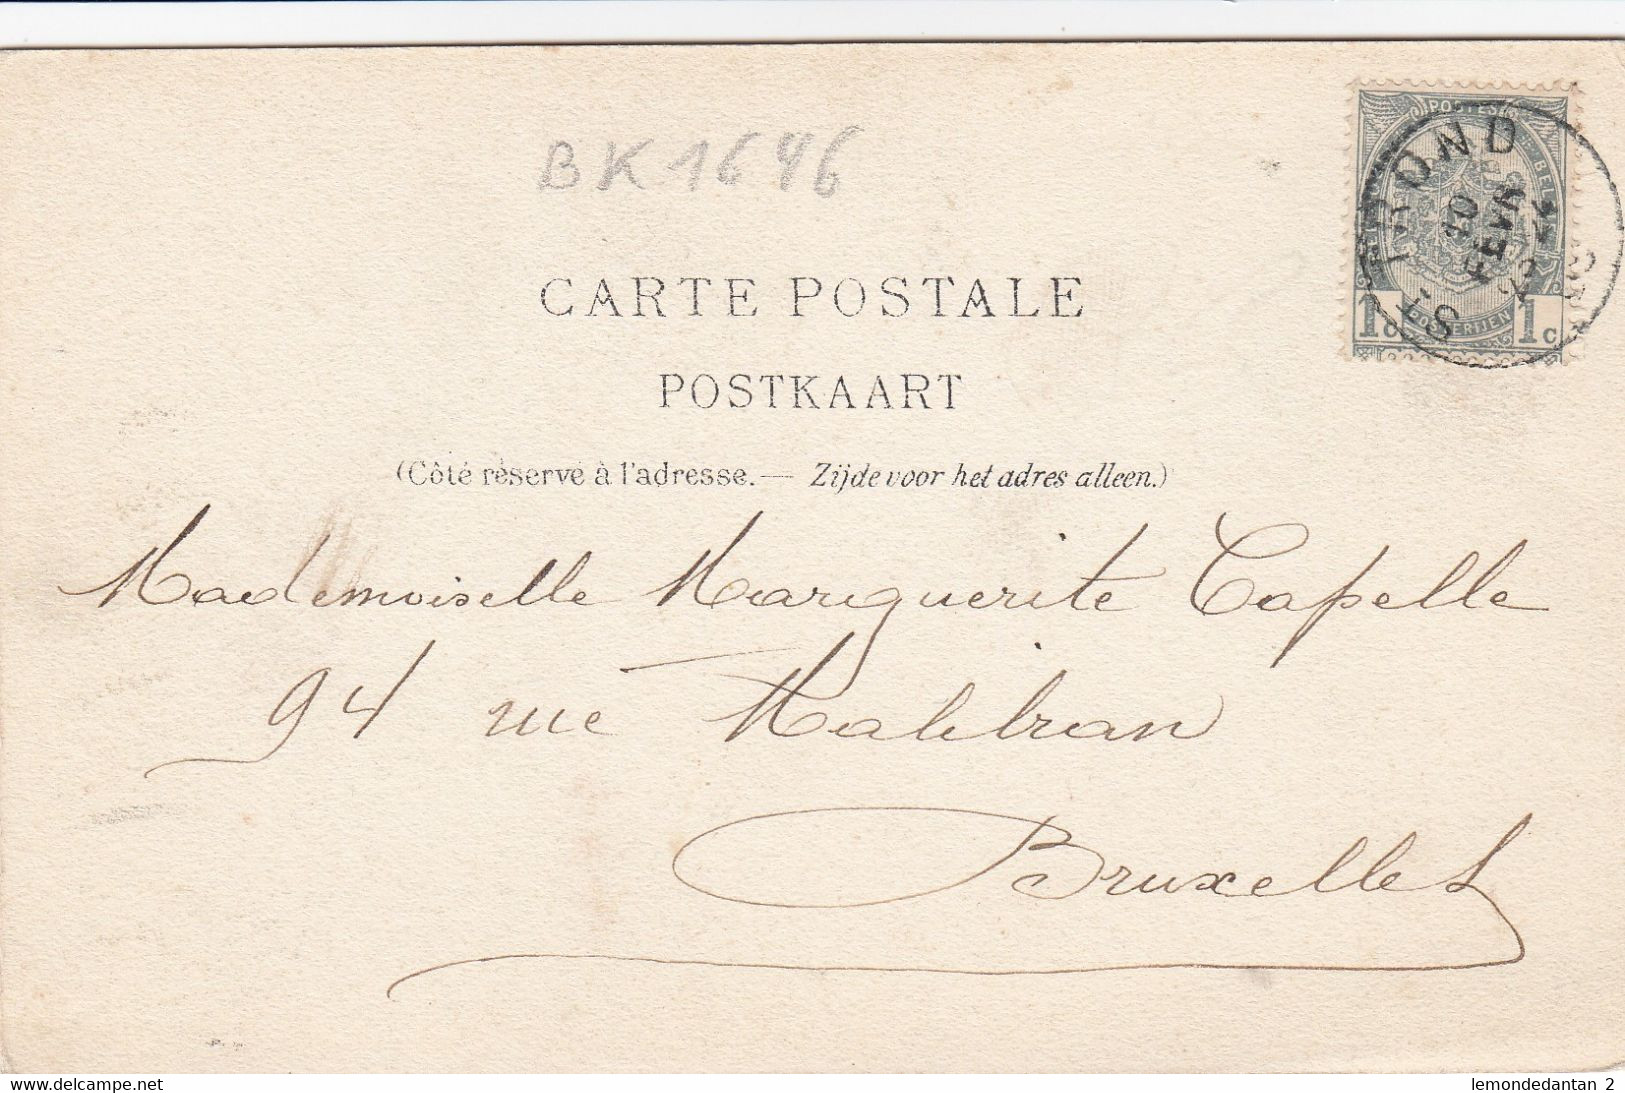 BK1646
POSTES
BEL
1c POSTERIJEN 1c
ST TROND
CARTE POSTALE
POSTKAART
(Côté réservé à l'adresse. — Zijde voor het adres alleen.)
Mademoiselle Marguerite Capelle
94 rue Malibran
Bruxelles
www.delcampe.net
lemondedantan 2